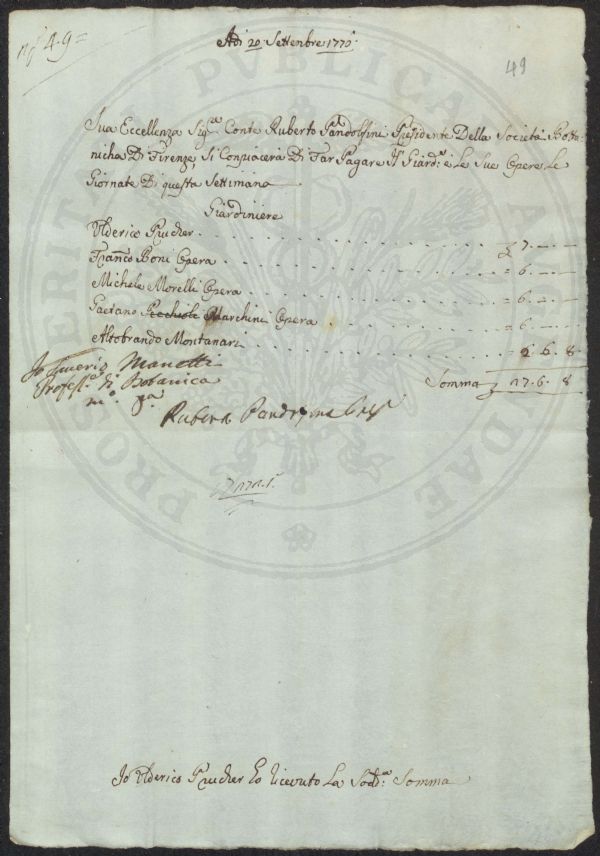 nº 4.9=
Adi 20: Settembre 1770:
49
Sua Eccellenza Sigre Conte Ruberto Pandolfini Presidente Della Società Botta=
nicha Di Firenze, Si Conpiacerà Di Far Pagare Il Giard:e e Le Sue Opere Le
Giornate Di questa Settimana
Giardiniere
Ulderico Prucher . . . £ 7. — . —
Franco Boni Opera . . . = 6. — . —
Michele Morelli Opera . . . = 6. — . —
Gaetano Marchini Opera . . . = 6. — . —
Altobrando Montanari . . . = 2. 6. 8.
Somma £ 27. 6. 8
Io Saverio Manetti
Profess.e di Botanica
mº. pª.
Io Ulderico Prucher Ho ricevuto La Sodd:a Somma
PROSPERITATI PUBLICAE AUGENDAE